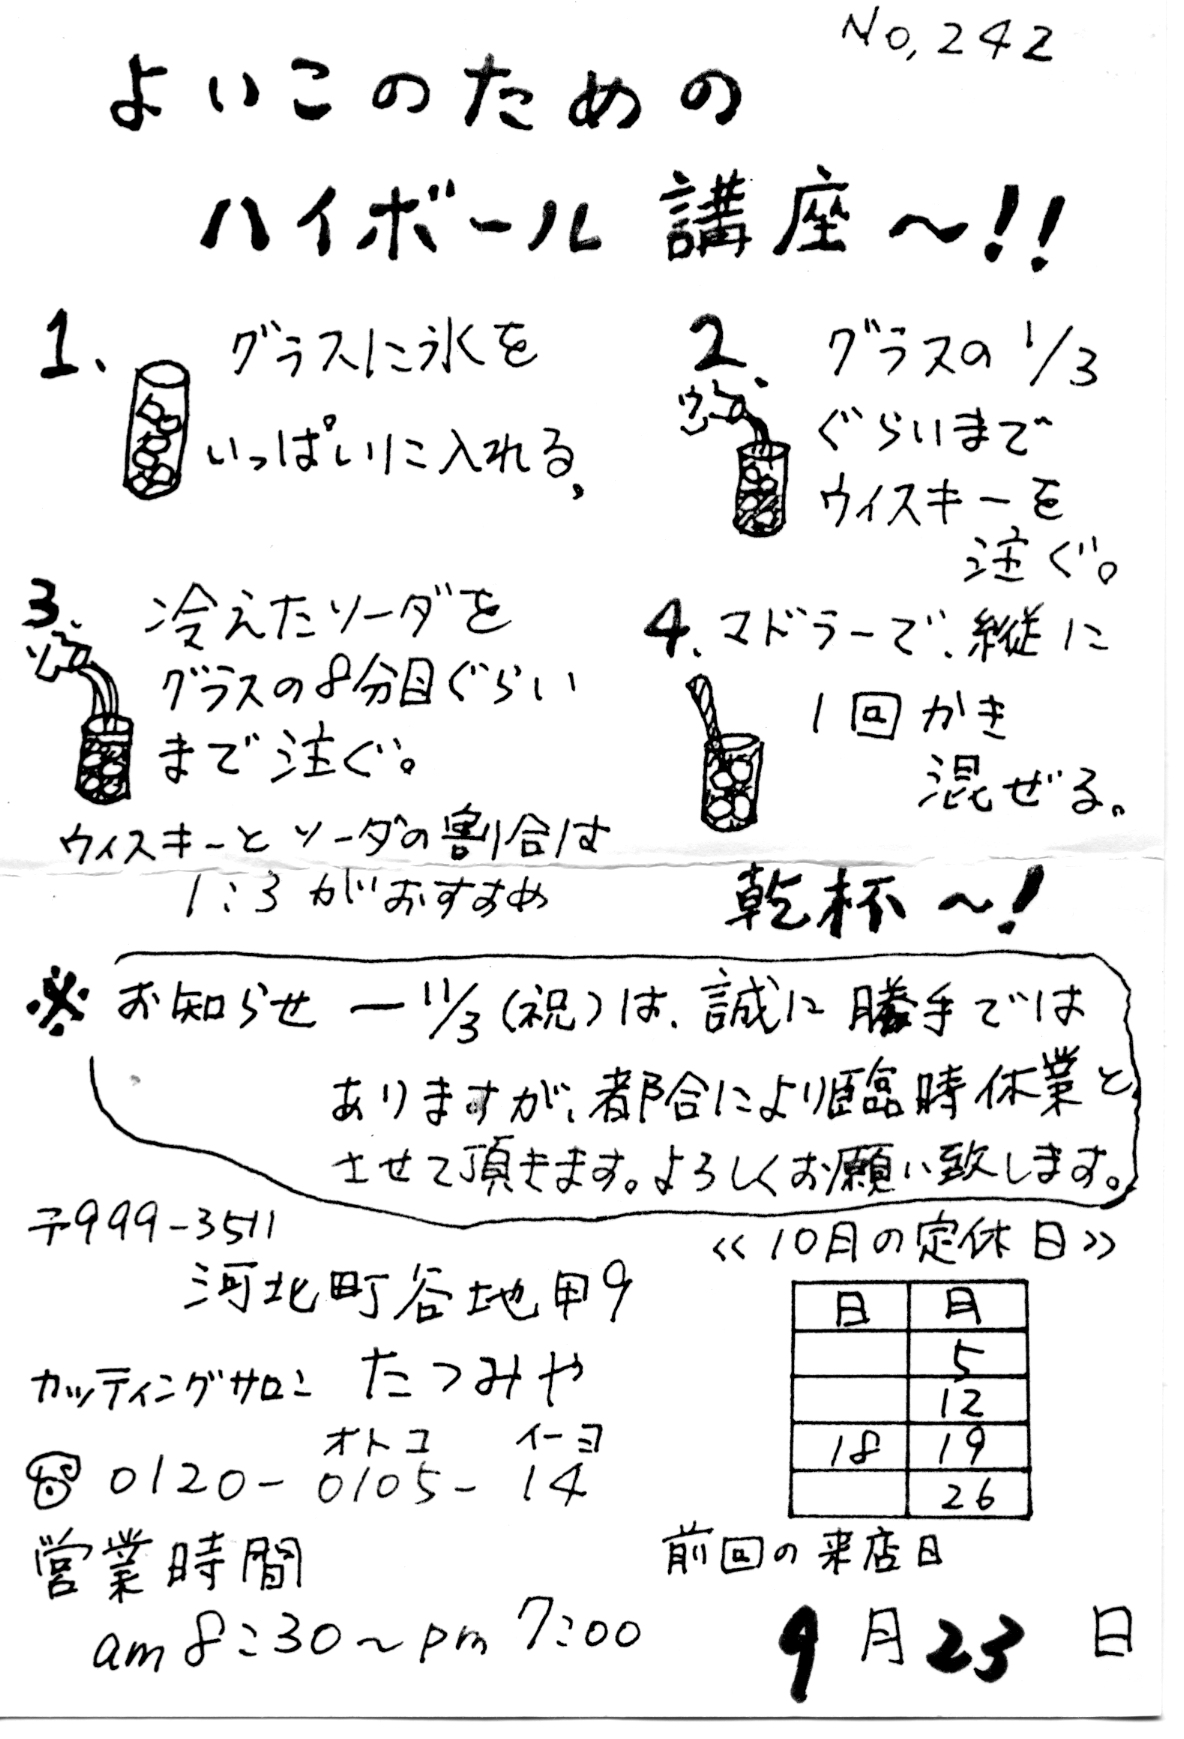 No,242
よいこのための
ハイボール講座～!!
1、グラスに氷を
いっぱいに入れる。
2、グラスの1/3
ぐらいまで
ウイスキーを
注ぐ。
ウイ
3、冷えたソーダを
グラスの8分目ぐらい
まで注ぐ。
ソ
ウィスキーとソーダの割合は
1:3がおすすめ
4、マドラーで、縦に
1回かき
混ぜる。
乾杯～!
※お知らせ ー11/3(祝)は、誠に勝手では
ありますが、都合により臨時休業と
させて頂きます。よろしくお願い致します。
〒999-3511
河北町谷地甲9
カッティングサロン たつみや
オトコ イーヨ
☎0120-0105-14
営業時間
am8:30～pm7:00
《10月の定休日》
日 月
5
12
18 19
26
前回の来店日
9月23日